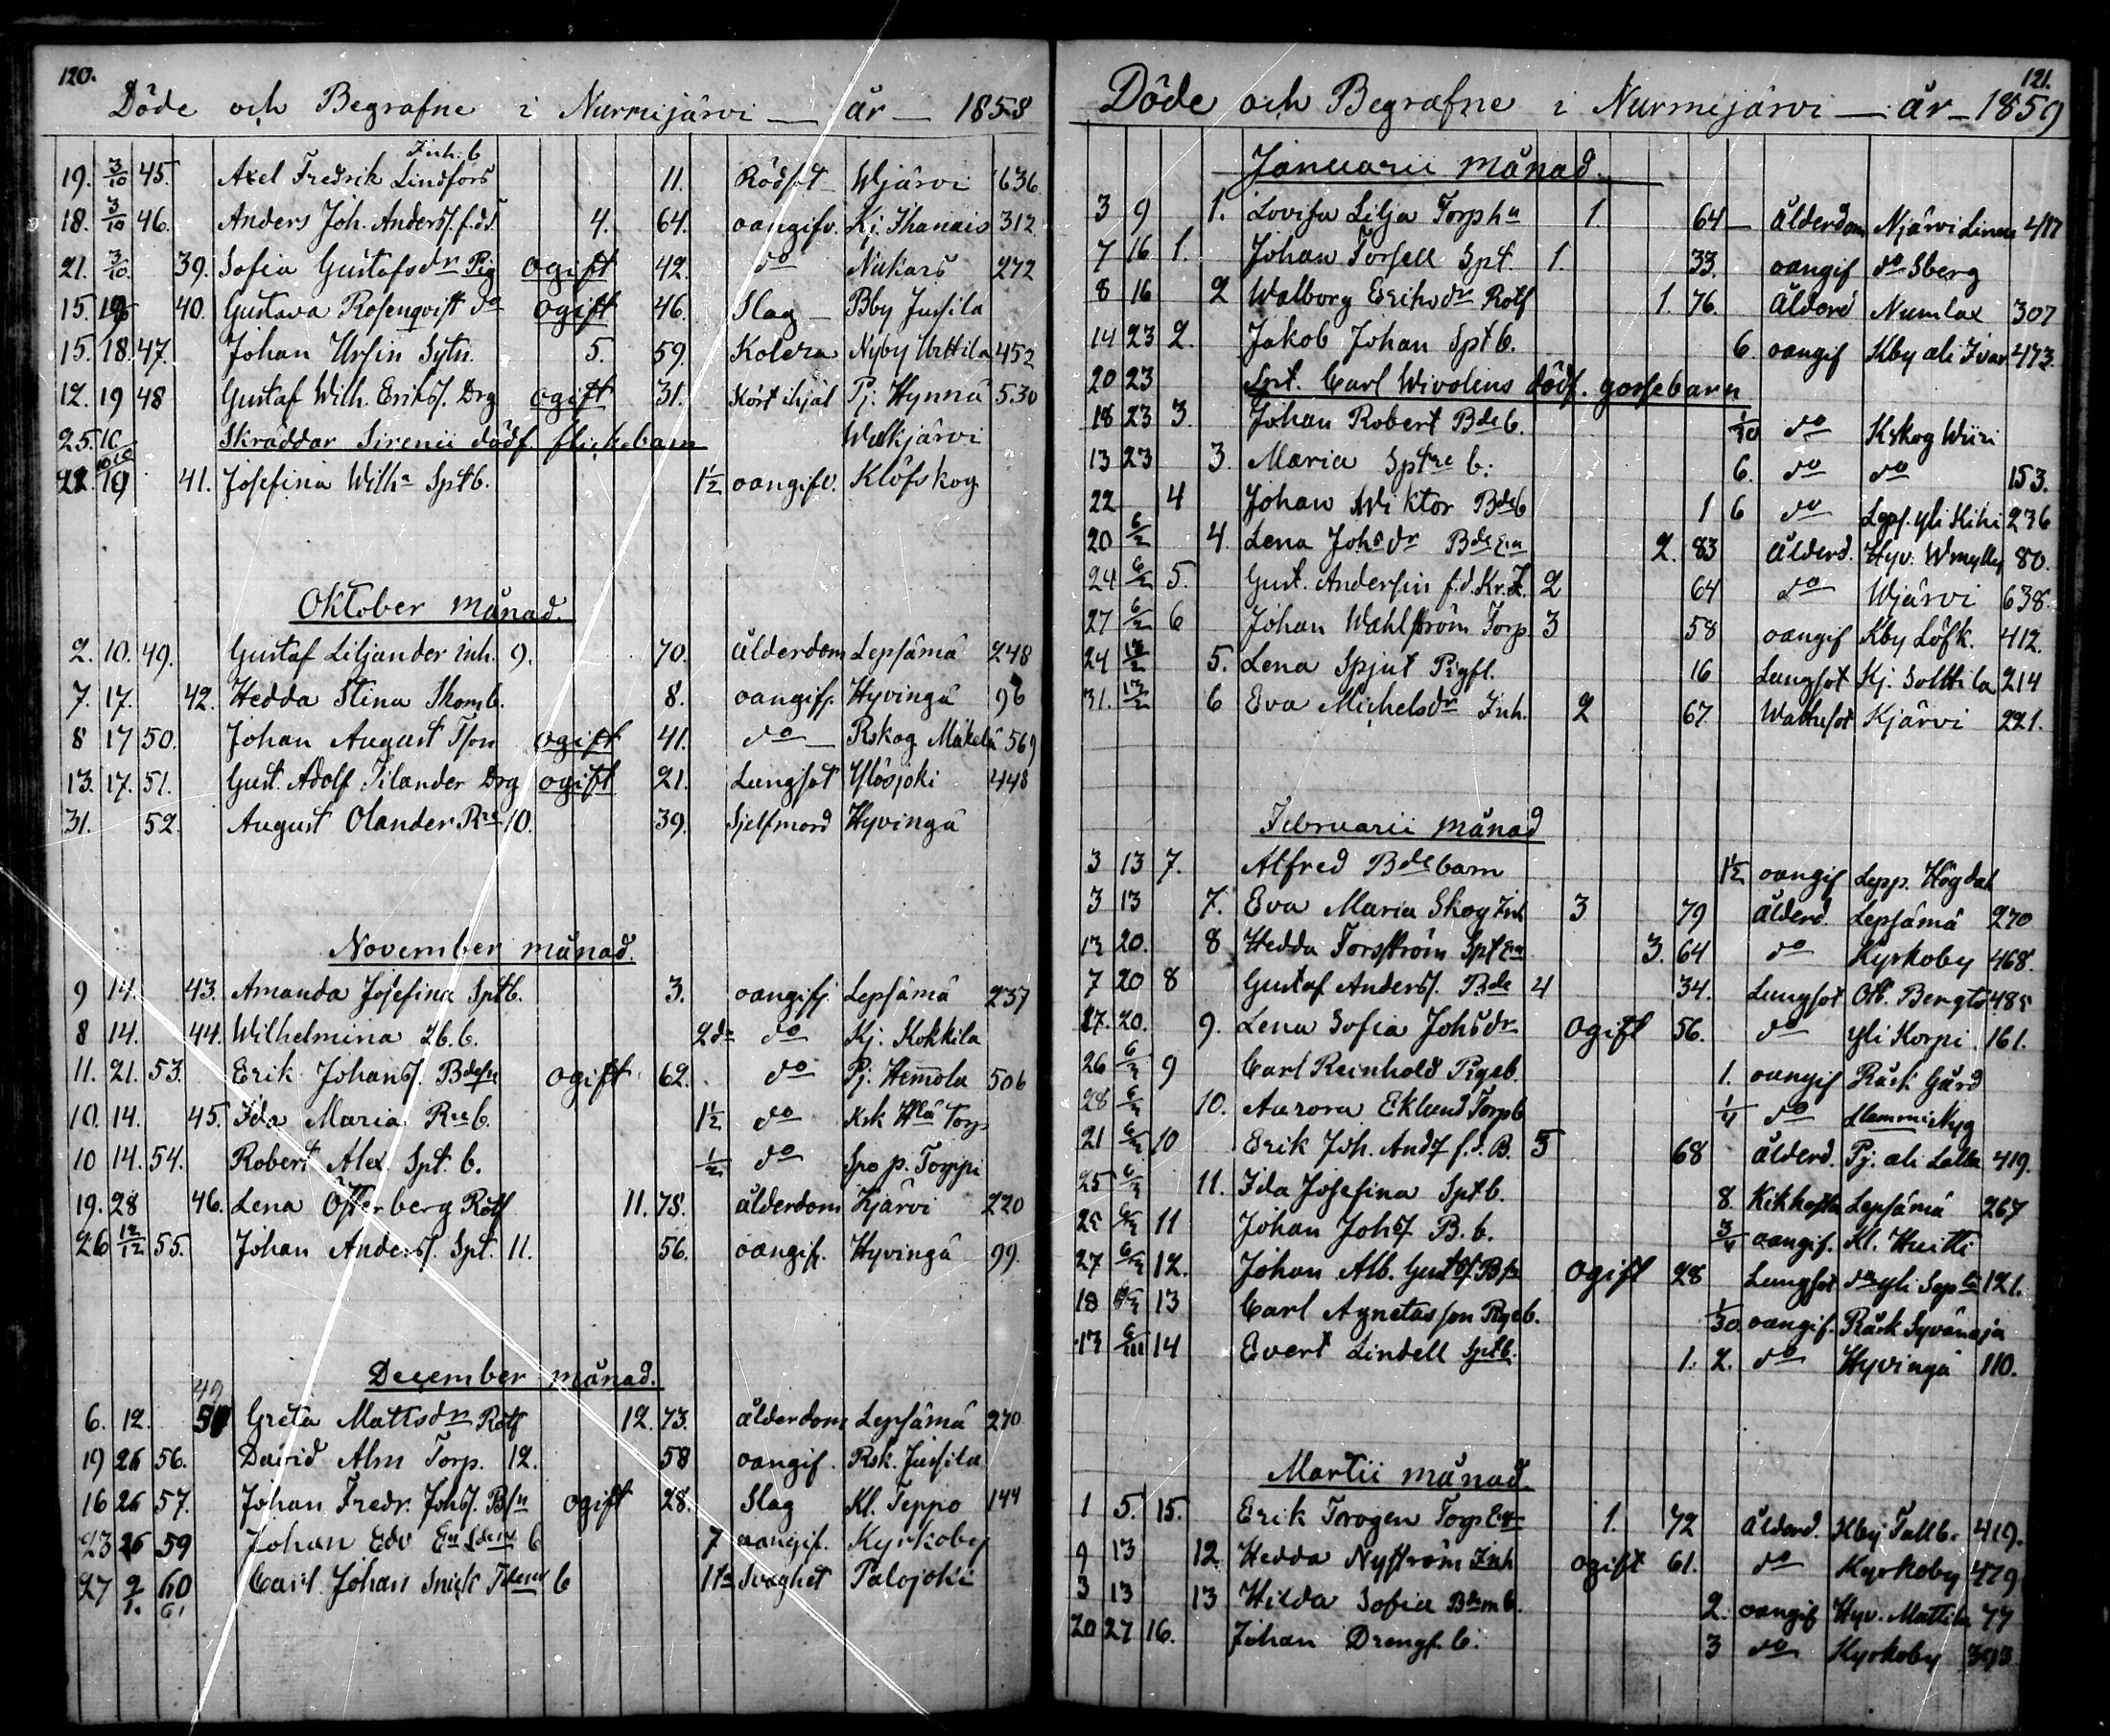 120.
Döde och Begrafne i Nurmijärvi — år — 1858
Inh. b
19. 3/10 45. Axel Fredrik Lindfors 11. Rödsot Wjärvi 636.
18. 3/10 46. Anders Joh. Anderss. f.d.S. 4. 64. oangifv. Kj. Ihanais 312
21. 3/10. 39. Sofia Gustafsdr Pig ogift 42. do Nukars 272
15. 40. Gustava Rosenqvist do ogift 46. Slag — Bby Jussila
15. 18. 47. Johan Ursin Sytn. 5. 59. Kolera Nyby Urttila 452
12. 19 48 Gustaf Wilh. Eriks. Drg ogift 31. Kört ihjäl Pj. Hynnä 530
25. Skräddar Sirenii dödf. flickebarn Walkjärvi
19 41. Josefina Wilha Sptb. 1 1/2 oangifv. Klöfskog
Oktober månad.
2. 10. 49. Gustaf Liljander inh. 9. 70. ålderdom Lepsämä 248
7. 17. 42. Hedda Stina Skomb. 8. oangifv. Hyvingä 96
8 17 50. Johan August Tson ogift 41. do — Rskog Mäkelä 569
13. 17. 51. Gust. Adolf Silander Drg ogift 21. Lungsot Ylösjoki 448
31. 52. August Olander Rre 10. 39. Sjelfmord Hyvingä
November månad.
9 14. 43. Amanda Josefina Sptb. 3. oangifv. Lepsämä 237
8 14. 44. Wilhelmina Ib. b. 2 dr do Kj. Kokkila
11. 21. 53. Erik Johans. Bdesn ogift 62. do Pj. Hemola 506
10. 14. 45. Ida Maria Rreb. 1 1/2 do Ksk Torp
10 14. 54. Robert Alex. Spt. b. 1/2 do Spo p. Torppi
19. 28 46. Lena Österberg Rotf 11. 78. ålderdom Kjärvi 220
26 12/12 55. Johan Anderss. Spt. 11. 56. oangif. Hyvingä 99.
December månad.
49
6. 12. Greta Mattsdr Rotf 12. 73. ålderdom Lepsämä 270
19 26 56. David Alm Torp. 12. 58 oangif. Rsk. Jussila
16 26 57. Johan Fredr. Johs. Bsn ogift 28. Slag Kl. Teppo 144
23 26 59 Johan Edv b 7 oangif. Kyrkoby
27 2/1. 60 Carl Johan b Svaghet Palojoki
61
121.
Döde och Begrafne i Nurmijärvi — år — 1859
Januarii månad.
3 9 1. Lovisa Lilja Torph a 1. 64 — Ålderdom Njärvi Linna 417
7 16 1. Johan Forsell Spt. 1. 33. oangif do Sberg
8 16 2 Walborg Eriksdr Rotf 1. 76. Ålderd Numlax 307
14 23 2. Jakob Johan Sptb. 6. oangif Kby ali Ivar 473.
20 23 Spt. Carl Wivolins dödf. gossebarn
18 23 3. Johan Robert Bdeb. 1/30 do Kskog Wiiri
13 23 3. Maria Sptre b. 6. do do 153.
22 4 Johan Wiktor Bdeb 1 6 do Leps. yli Kihi 236
20 6/2 4. Lena Johsdr Bde Ena 2. 83 Ålderd. Hyv. Wmylly 80.
24 6/2 5. Gust. Andersin f.d. Kr. L. 2 64 do Wjärvi 638.
27 6/2 6 Johan Wahlström Torp. 3 58 oangif Kby Löfk. 412.
24 13/2 5. Lena Spjut Pigfl. 16 Lungsot Kj. Solttila 214
31. 13/2 6 Eva Michelsdr Inh. 2 67 Wattusot Kjärvi 221.
Februarii månad
3 13 7. Alfred Bdebarn 1 1/2 oangif Lepp. Högdal
3 13 7. Eva Maria Skog Inh 3 79 Ålderd. Lepsämä 270
12 20. 8 Hedda Forsström Spt Ena 3. 64 do Kyrkoby 468.
7 20 8 Gustaf Anderss. Bde 4 34. Lungsot Ot. Bergts 485
17. 20. 9. Lena Sofia Johsdr ogift 56. do Yli Korpi 161.
26 6/3 9 Carl Reinhold Pigeb. 1. oangif Räsk Gård
28 6/3 10. Aurora Eklund Torpb 1/4 do Nyg
21 6/3 10 Erik Joh. Ands f.d. B. 5 68 Ålderd. Pj. ali Lalla 419.
25 6/3 11. Ida Josefina Sptb. 8 Kikhosta Lepsämä 267
25 6/3 11 Johan Johs B. b. 3/4 oangif. Kl. Huitti
27 6/3 12. Johan Alb. Gustafs Bsn ogift 28 Lungsot do yli Sep 121.
18 13 Carl Agnetasson Pigeb. 1/30. oangif. Räsk Syvänoja
13 6/III 14 Evert Lindell Sptb. 1. 2. do Hyvingä 110.
Martii månad.
1 5. 15. Erik Forogen Torp E 1. 72 Ålderd. Kby Tallb. 419.
9 13 12. Hedda Nyström Inh ogift 61. do Kyrkoby 479
3 13 13 Hilda Sofia Bdemb. 2. oangif Hyv. Mattila 77
20 27 16. Johan Drengf. b. 3 do Kyrkoby 393